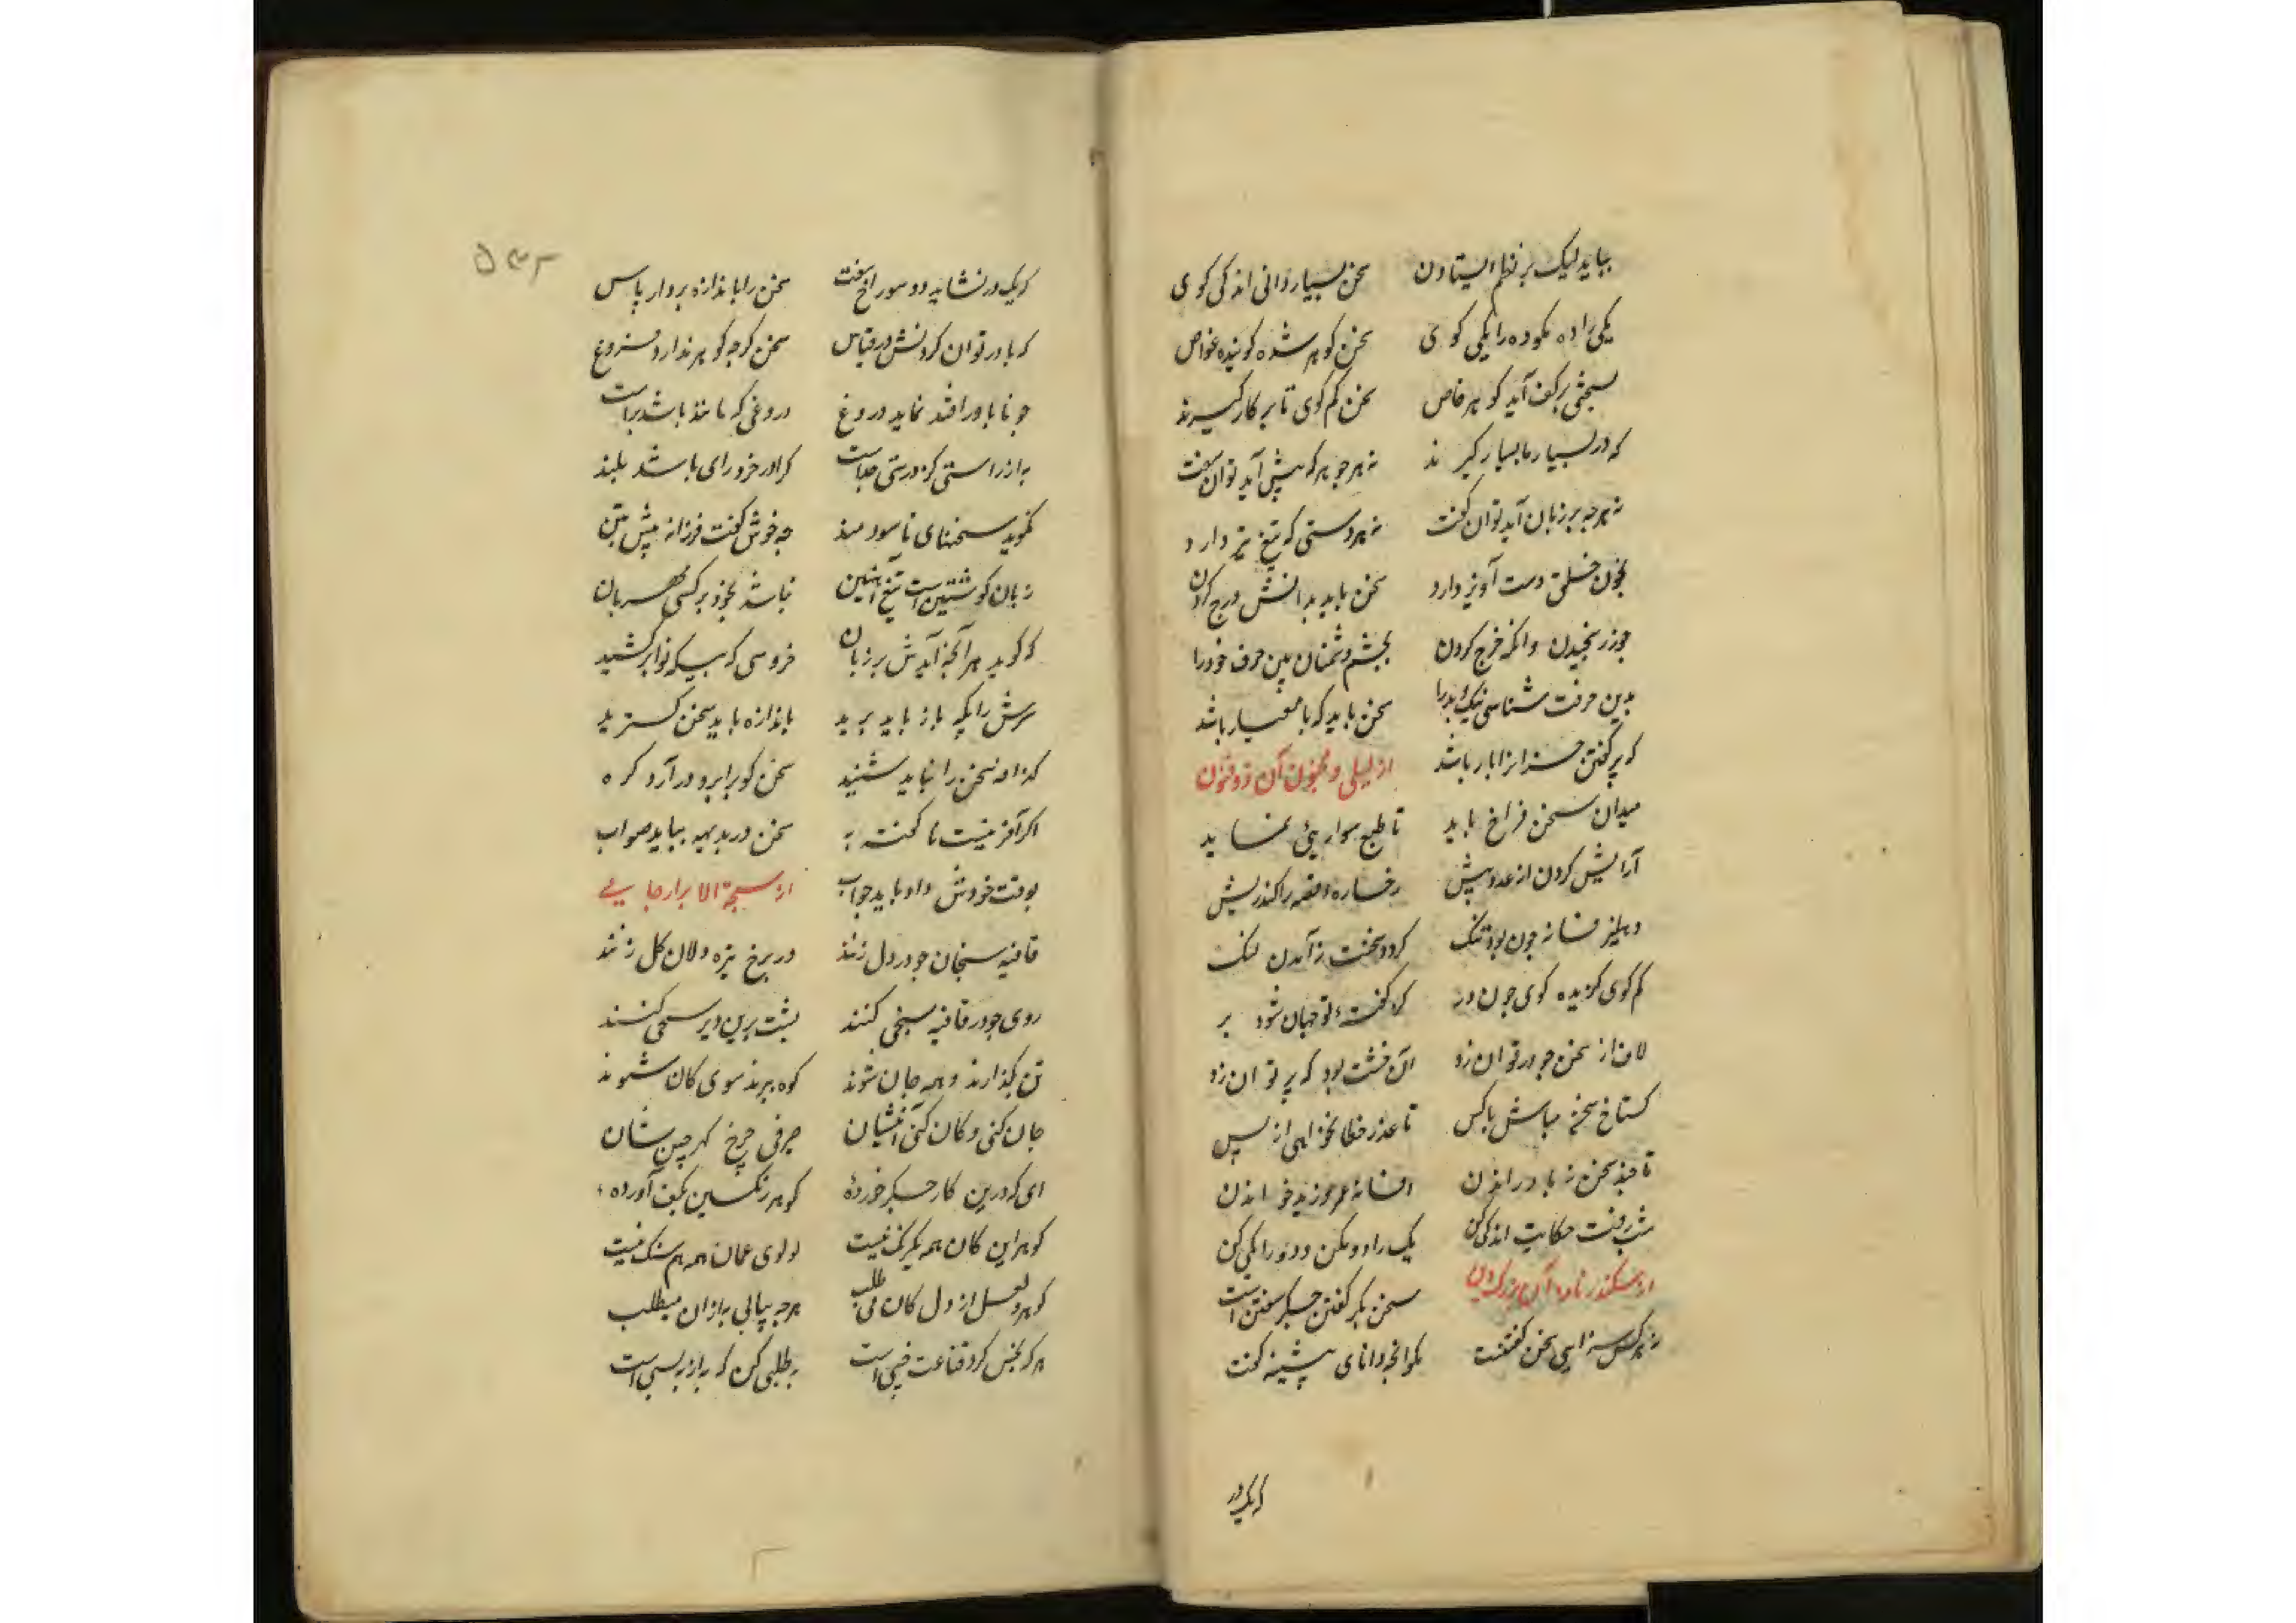 بباید لیک بر نظم ایستادن سخن بسیار دانی اندکی کوی
یکی را ده مکو ده را یکی کوی سخن کوهر شده کوینده غواص
بسختی بر کف آید کوهر خاص سخن کم کوی تا بر کار کیرند
که در بسیار بد بسیار کیرند نه هر جوهر که پیش آید توان سفت
نه هرچه بر زبان آید توان کفت نه هر دستی که تیغ تیز دارد
بخون خلق دست آویز دارد سخن باید بدانش درج کردن
چو زر سنجیدن وانکه خرج کردن بچشم دشمنان بین حرف خود را
بدین حرفت شناسی نیک و بد را سخن باید که با معیار باشد
که پر کفتن خران را بار باشد از لیلی و مجنون آن ذوفنون
میدان سخن فراخ باید تا طبع سواریئی نماید
آرایش کردن از عدد بیش رخساره قصه را کند ریش
دهلیز فسانه چون بود تنک کردد سخنت ز آمدن لنک
کم کوی کزیده کوی چون در کز کفته تو جهان شود پر
لاف از سخن چو در توان زد آن خشت بود که پر توان زد
کستاخ سخن مباش باکس تا عذر خطا نخواهی از پس
تا چند سخن ز باد راندن افسانه عمرو زید خواندن
شب رفت حکایت اندکی کن یک را دو مکن دو را یکی کن
از سکندر نامه آن بزرک دین سخن بکر کفتن جکر سفتن است
نه هرکس سزای سخن کفتنست نکو آنچه دانای پیشینه کفت
که یک در
۵۳۲
که یک در نشاید دو سوراخ سفت سخن را باندازه بردار پاس
که باور توان کردنش در قیاس سخن کرچه کوهر ندارد فروغ
چو نا باور افتد نماید دروغ دروغی که مانند باشد براست
به از راستی کز درستی جداست کرا در خرد رای باشد بلند
نکوید سخنهای ناسودمند چه خوش کفت فرزانه پیش بین
زبان کوشتین است تیغ آهنین نباشد بخود بر کسی مهربان
که کوید هر آنچه آیدش بر زبان خروسی که بیکه نوا برکشید
سرش را پکه باز باید برید باندازه باید سخن کسترید
کزافه سخن را نباید شنید سخن کو برابرو در آرد کره
اکر آفرینست ناکفته به سخن در بدیهه بباید صواب
بوقت خودش داد باید جواب از سبحة الابرار جامی
قافیه سنجان چو در دل زنند در برخ تیره دلان کل زنند
روی چو در قافیه سنجی کنند پشت برین دیر سپنجی کنند
تن بکذارند و همه جان شوند کوه ببرند سوی کان شوند
جان کنی و کان کنی آئینشان صرفی چرخ کهر چین شان
ای که درین کار جکر خوردۀ کوهر رنکین بکف آورده
کوهر این کان همه یکرنک نیست لولوی عمان همه هم سنک نیست
کوهر و لعل از دل کان می طلب هرچه بیابی به از ان میطلب
هر که بخس کرد قناعت خسی است به طلبی کن که به از به بسی است